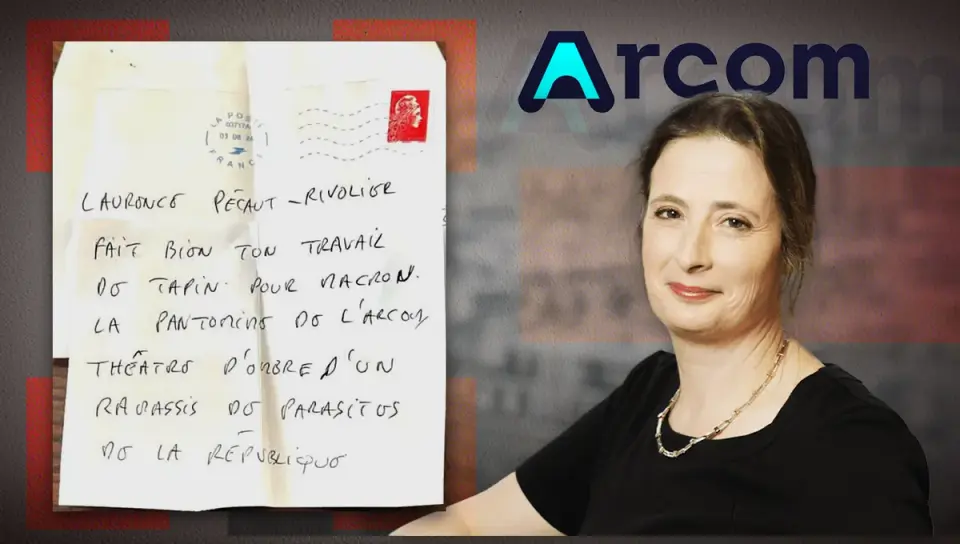 Arcom
LA POSTE
03717A
FRANCE
LAURENCE PÉCAUT-RIVOLIER
FAIT BIEN TON TRAVAIL
DE TAPIN. POUR MACRON.
LA PANTOMIME DE L'ARCOM
THÉÂTRE D'OMBRE D'UN
RAMASSIS DE PARASITES
DE LA RÉPUBLIQUE